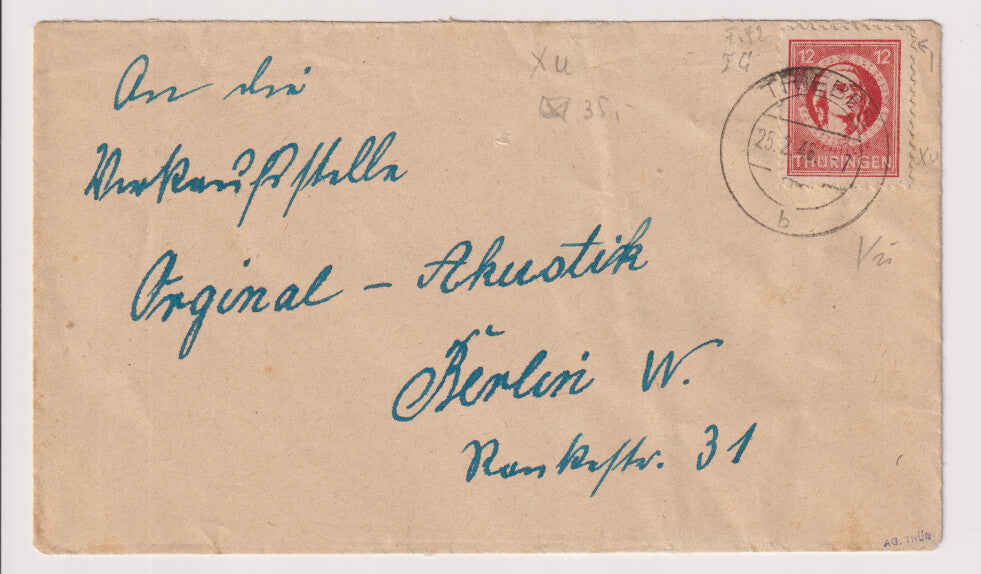 An die
Verkaufsstelle
Orginal - Akustik
Berlin W.
Rankestr. 31
12 12
THÜRINGEN
TRIEBES
b
Xu
35,-
Xu
AG. THÜR